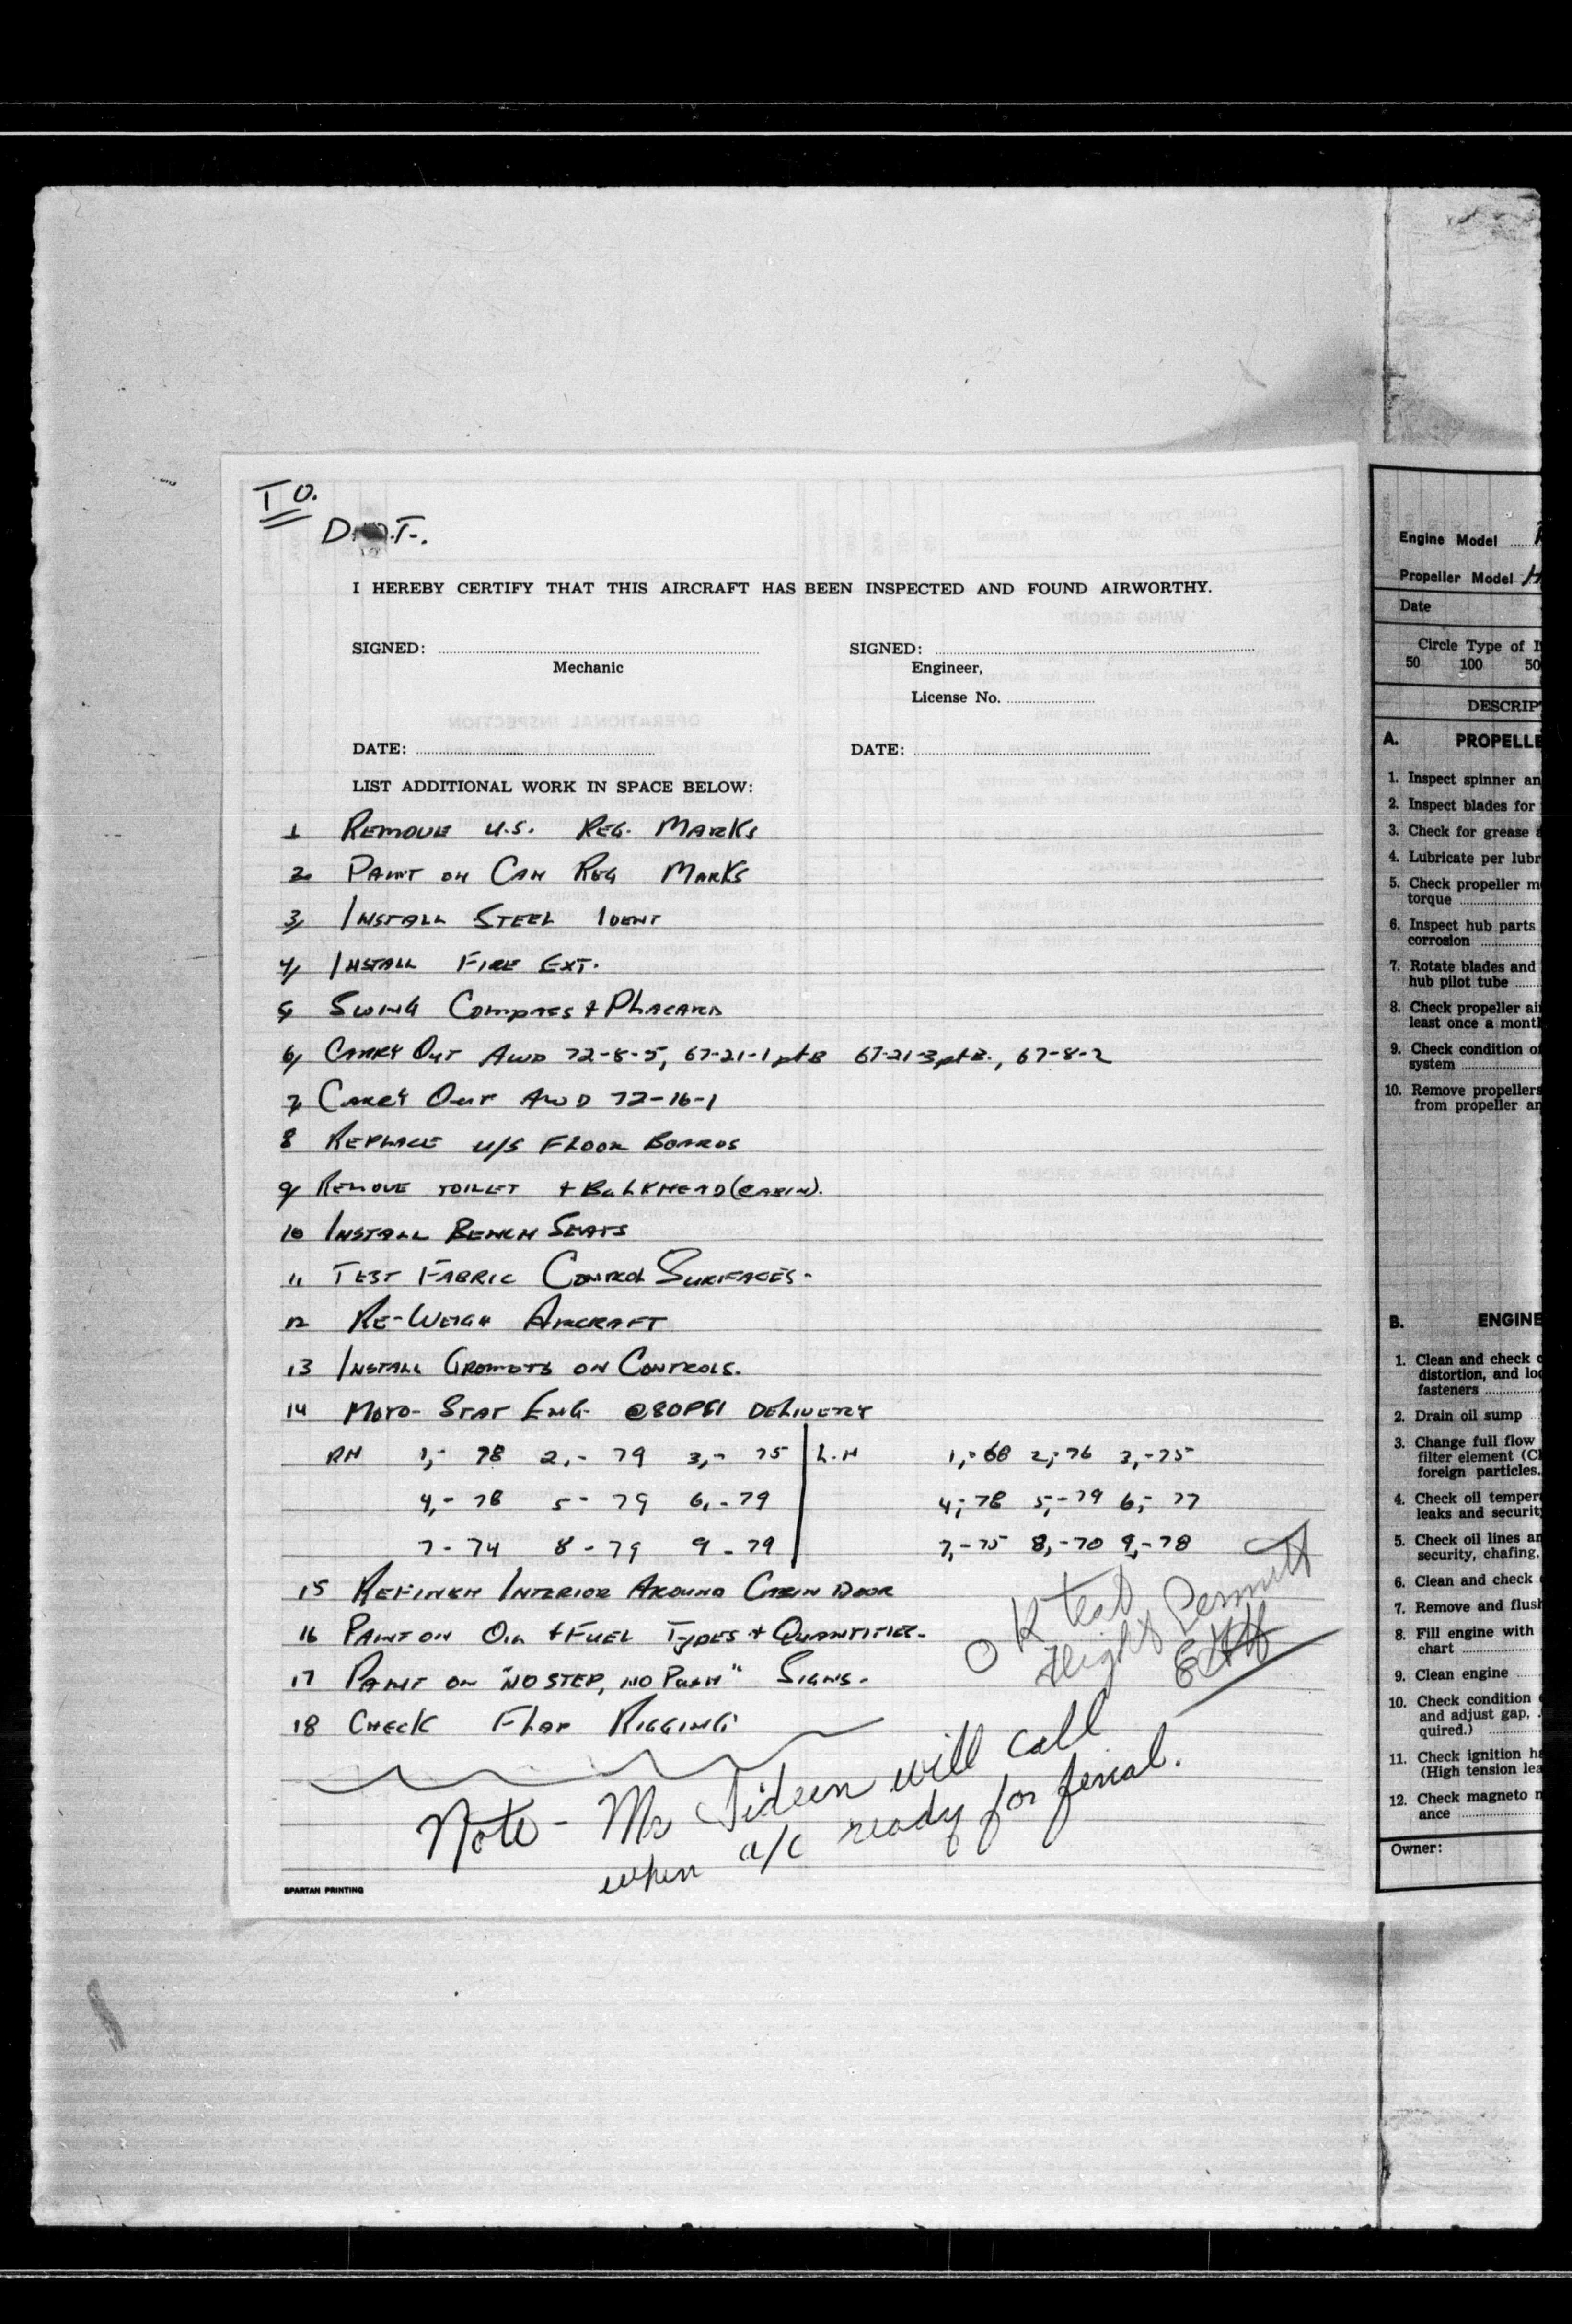 TO.
D.O.T.
I HEREBY CERTIFY THAT THIS AIRCRAFT HAS BEEN INSPECTED AND FOUND AIRWORTHY.
SIGNED: SIGNED:
Mechanic Engineer,
License No.
DATE: DATE:
LIST ADDITIONAL WORK IN SPACE BELOW:
1 REMOVE U.S. REG. MARKS
2 PAINT ON CAN REG MARKS
3, INSTALL STEEL IDENT
4, INSTALL FIRE EXT.
5, SWING COMPASS + PLACARD
6, CARRY OUT AWD 72-8-5, 67-21-1 pt B 67-21-3 pt B., 67-8-2
7, CARRY OUT AWD 72-16-1
8 REPLACE U/S FLOOR BOARDS
9, REMOVE TOILET + BULKHEAD (CABIN).
10 INSTALL BENCH SEATS
11 TEST FABRIC CONTROL SURFACES-
12 RE-WEIGH AIRCRAFT
13 INSTALL GROMETS ON CONTROLS.
14 MOTO-STAT ENG- @80PSI DELIVERY
RH 1,- 78 2,- 79 3,- 75 L.H 1,-68 2,-76 3,-75
4,- 78 5- 79 6,-79 4,-78 5,-79 6,- 77
7-74 8-79 9-79 7,-75 8,-70 9,-78
15 REFINISH INTERIOR AROUND CABIN DOOR
16 PAINT ON OIL + FUEL TYPES + QUANTITIES-
17 PAINT ON "NO STEP, NO PUSH" SIGNS-
18 CHECK FLAP RIGGING
OK test
flight Permit
Note - Mr will call
when a/c ready for final.
SPARTAN PRINTING
Engine Model
Propeller Model
Date
Circle Type of
50 100 50
DESCRIP
A. PROPELLE
1. Inspect spinner an
2. Inspect blades for
3. Check for grease
4. Lubricate per lubr
5. Check propeller m
torque
6. Inspect hub parts
corrosion
7. Rotate blades and
hub pilot tube
8. Check propeller ai
least once a mont
9. Check condition of
system
10. Remove propellers
from propeller an
B. ENGINE
1. Clean and check
distortion, and loo
fasteners
2. Drain oil sump
3. Change full flow
filter element (Cl
foreign particles.
4. Check oil temper
leaks and securit
5. Check oil lines an
security, chafing,
6. Clean and check
7. Remove and flush
8. Fill engine with
chart
9. Clean engine
10. Check condition
and adjust gap,
quired.)
11. Check ignition ha
(High tension lea
12. Check magneto
ance
Owner: